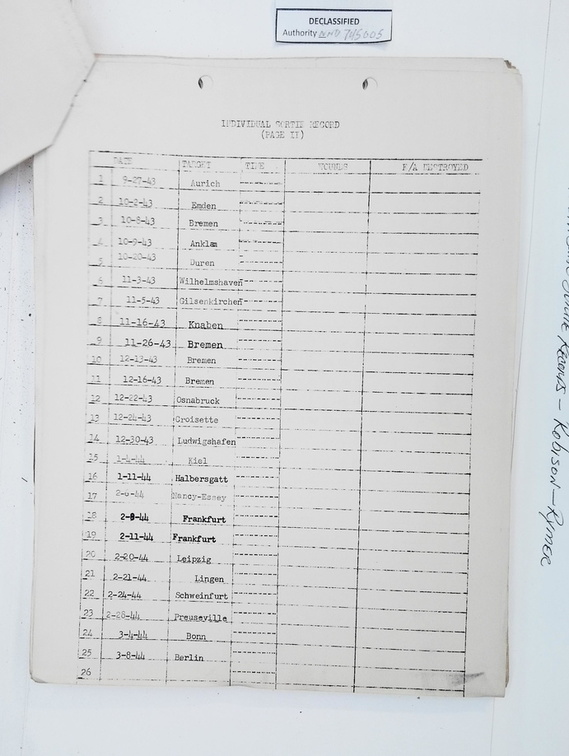 DECLASSIFIED
Authority NND 745005
INDIVIDUAL SORTIE RECORD
(PAGE II)
DATE TARGET TIME ROUNDS E/A DESTROYED
1 9-27-43 Aurich
2 10-2-43 Emden
3 10-8-43 Bremen
4 10-9-43 Anklam
5 10-20-43 Duren
6 11-3-43 Wilhelmshaven
7 11-5-43 Gilsenkirchen
8 11-16-43 Knaben
9 11-26-43 Bremen
10 12-13-43 Bremen
11 12-16-43 Bremen
12 12-22-43 Osnabruck
13 12-24-43 Croisette
14 12-30-43 Ludwigshafen
15 1-4-44 Kiel
16 1-11-44 Halbersgatt
17 2-6-44 Nancy-Essey
18 2-8-44 Frankfurt
19 2-11-44 Frankfurt
20 2-20-44 Leipzig
21 2-21-44 Lingen
22 2-24-44 Schweinfurt
23 2-28-44 Preuseville
24 3-4-44 Bonn
25 3-8-44 Berlin
26
Records - Robison - Rymer